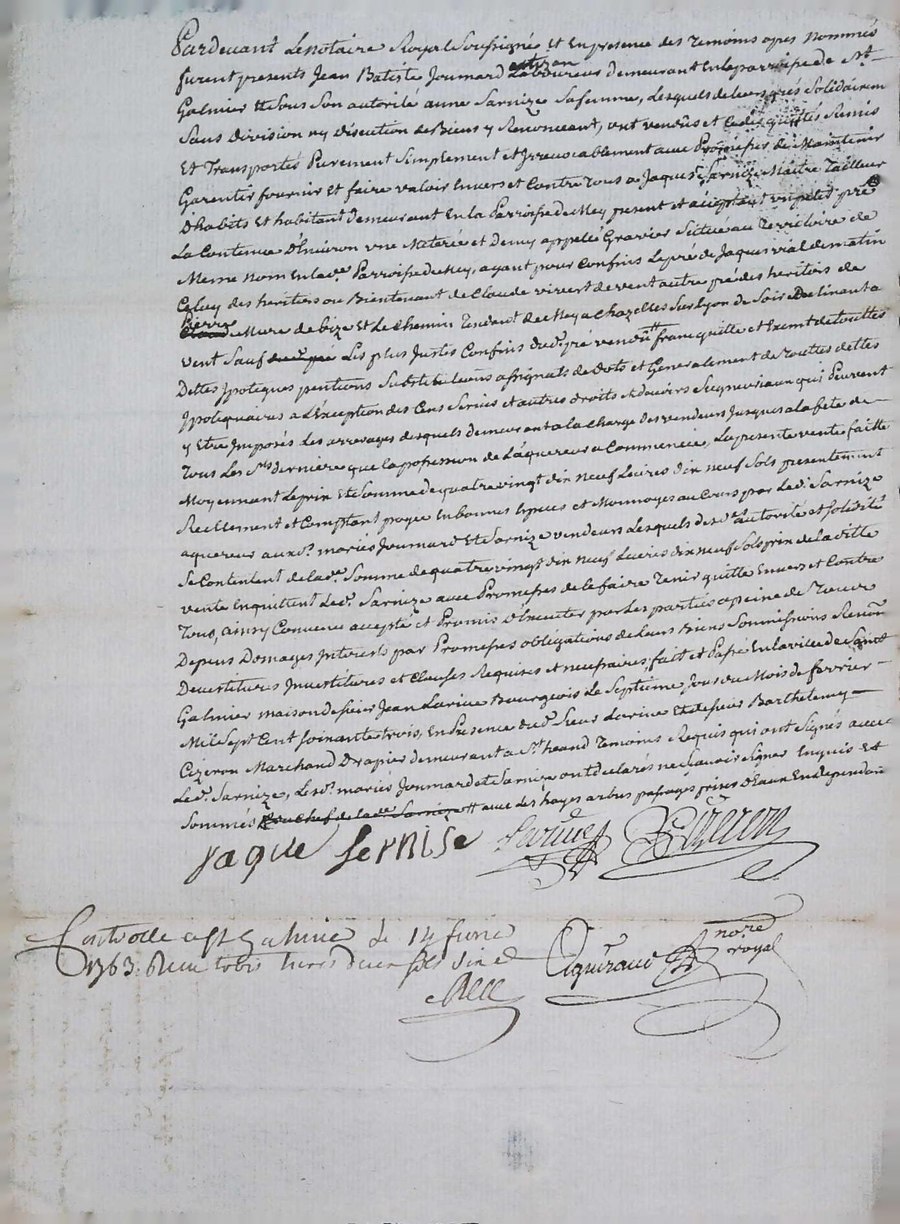 Pardevant Le notaire Royal Soussigné Et En presence des Temoins apres Nommés
furent presents Jean Batiste Joumard Laboureur demeurant En la parroisse de St
Galmier Et sous Son autorité anne Sarnize Sa femme, Lesquels de leurs grés Solidairem
Sans division ny discution de Biens y Renonceant, ont vendus et cedés quittés Remis
Et Transportés Purement Simplement et Irrevocablement avec Promesses de Maintenir
Garentir fournir Et faire valoir Envers et Contre Tous a Jaques Sarnize Maitre Tailleur
Dhabits Et habitant demeurant En la Parroisse de Mey present et acceptant un petit pré
La Contenue D'Environ une Meterée et demy appellé Gravier Situé au Territoire de
Meme Nom En lade Parroisse de Mey, ayant pour Confins Le pré de Jaques vial de matin
Celuy des heritiers ou Bientenant de Claude vivert de vent autre pré des heritiers de
Pierre Mure de bize Et Le Chemin Tendent de Mey a Chazelles Sur Lyon de Soir Declinant a
vent Sauf Les plus Justes Confins dud. pré vendu franc quitte et Exemt de touttes
Dettes Ipoteques pentions Substitutions assignats de Dots et Generalement de Touttes dettes
Ipotequaires a L'Exception des Cens Servis et autres droits et devoirs Seigneuriaux qui Peuvent
y Etre Imposés Les arrerages desquels demeurant a la charge des vendeurs Jusques a la fete de
Tous Les Sts derniere que la possession de L'aquereur a Commencée, La presente vente faitte
Moyennant Le prix Et Somme de quatre vingt dix neuf Livres dix neuf Sols presentement
Reellement et Comptant payée En bonnes Especes et Monnoyes au Cours par Led. Sarnize
aquereur auxd. mariés Joumard Et Sarnize vendeurs Lesquels desd. autorité et Solidité
Se Contentent de lade Somme de quatre vingt dix neuf Livres dix neuf Sols prix de la ditte
vente En quittent Led. Sarnize avec Promesses de le faire Tenir quitte Envers et Contre
Tous, ainsy Convenu accepté et Promis D'Executer par Les parties a peine de Tous
Depens Domages Interets par Promesses obligations de Leurs Biens Soumissions Renon
Devestitures Investitures et Clauses Requises et necessaires, fait et Passé En la ville de Saint
Galmier maison de Sieur Jean Larive Bourgeois Le Septieme Jour du Mois de fevrier
Mil Sept Cent Soixante trois, En Presence dud. Sieur Larive Et de Sieur Barthelemy
Cizeron Marchand Drapier demeurant a St heand Temoins Requis qui ont Signés avec
Led. Sarnize, Lesd. mariés Joumard et Sarnize ont declarés ne Sçavoir Signer Enquis Et
Sommés avec Les hayes arbres passages prises D'Eaux En dependant
jaque sernise Larive Cizeron
Controllé a St Galmier le 14 fevrier
1763. Recu trois livres
nore
royal